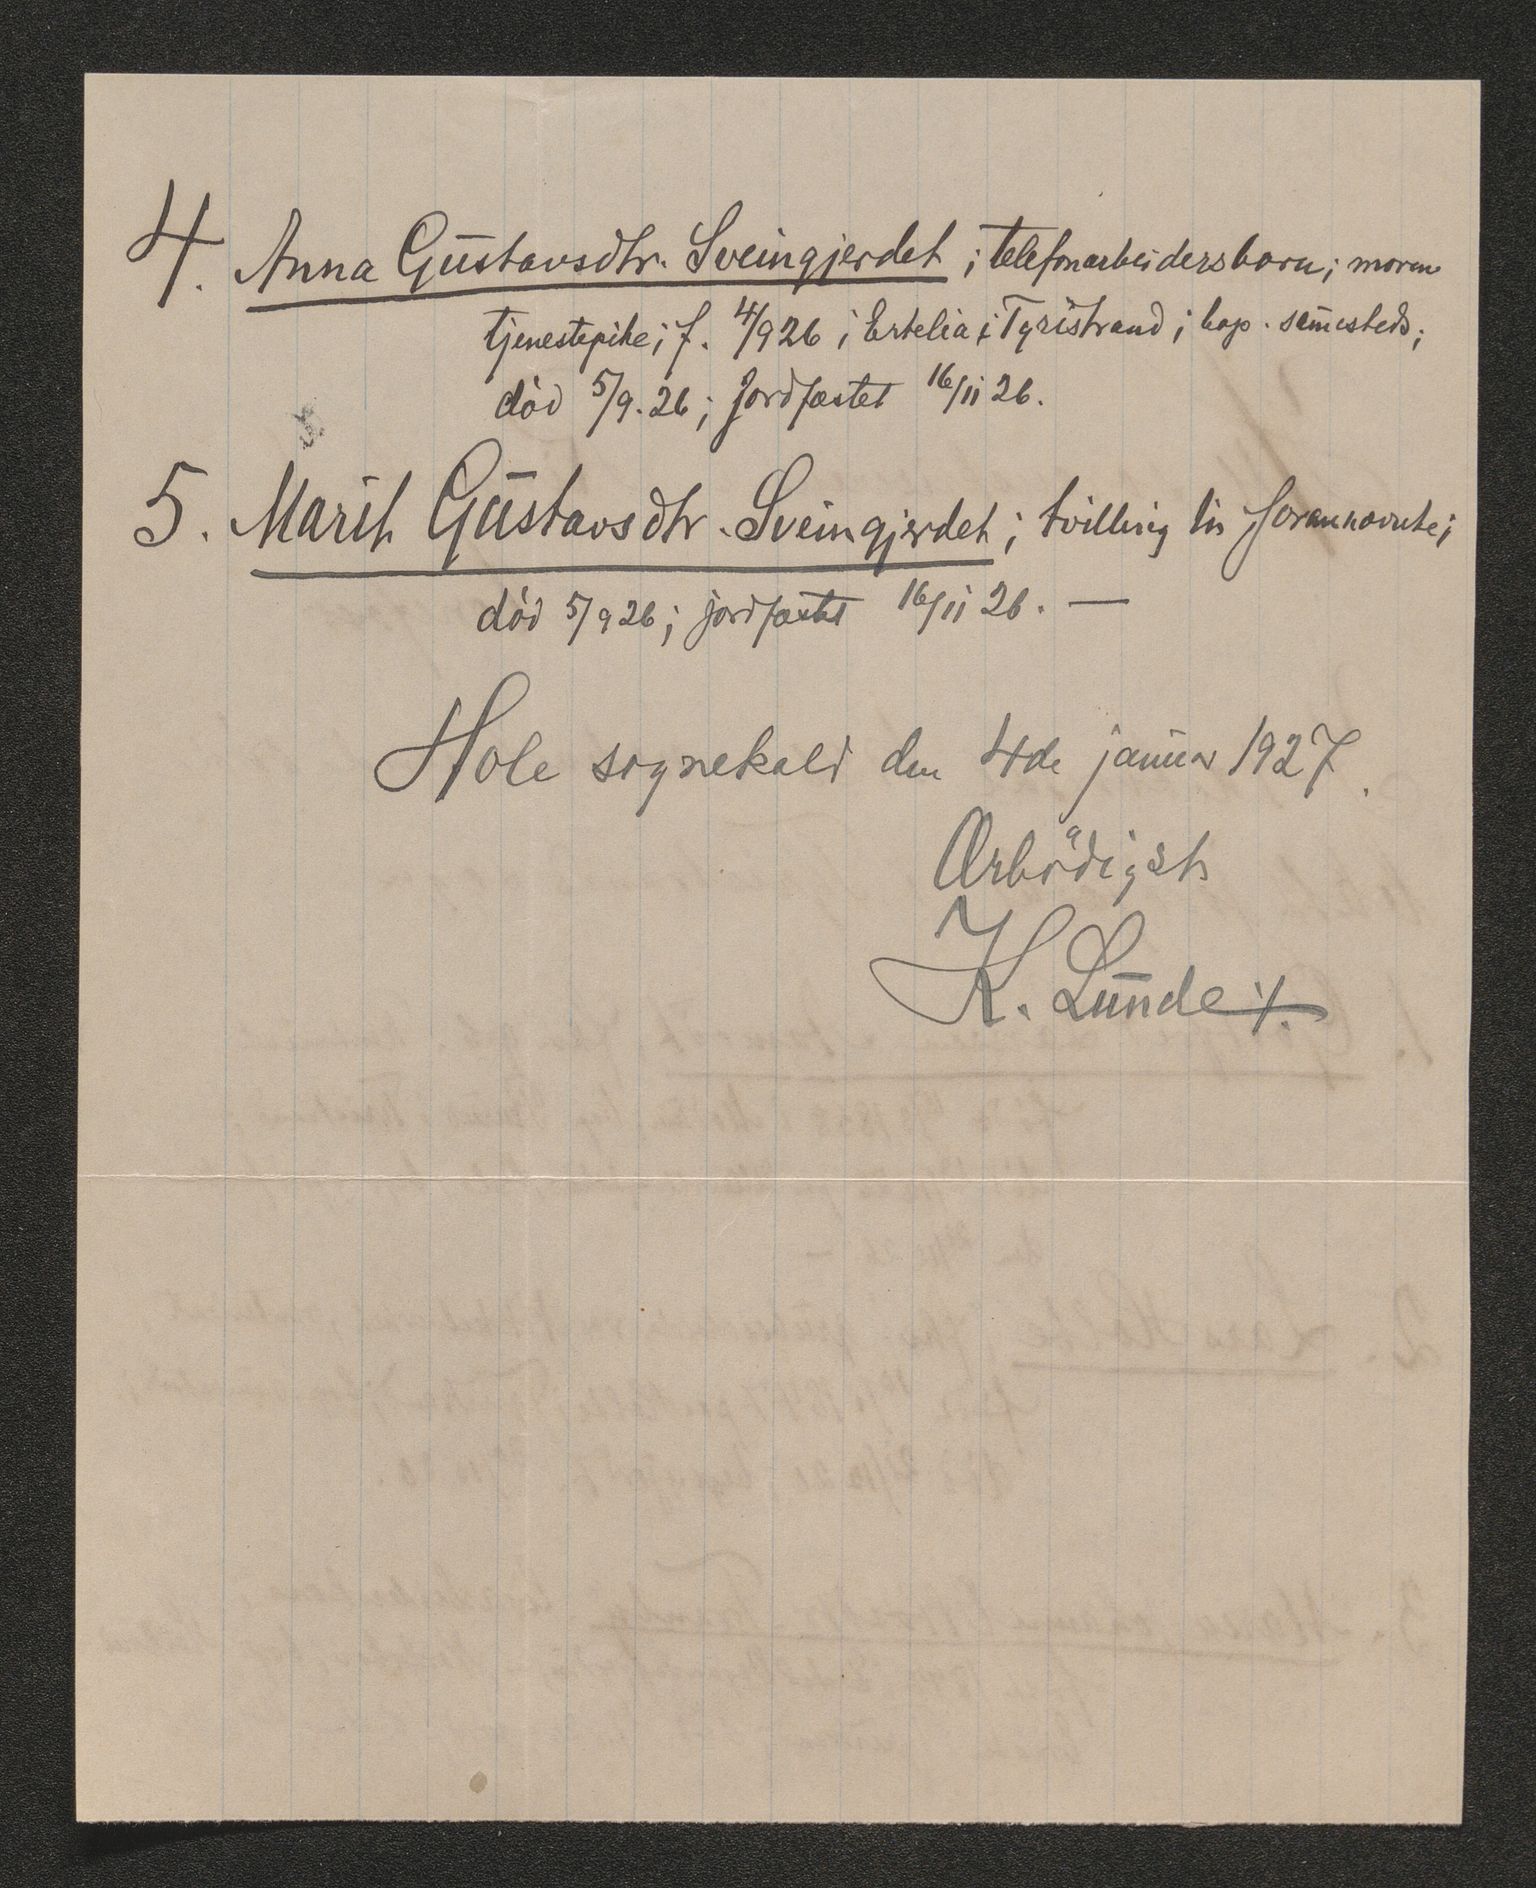 4. Anna Gustavsdtr. Sveingjerdet; telefonarbeidersbarn; moren
tjenestepike; f. 4/9 26 i Ertelia i Tyristrand; bop. samesteds;
död 5/9.26; jordfæstet 16/11 26.
5. Marit Gustavsdtr. Sveingjerdet; tvilling til forannævnte;
död 5/9 26; jordfæstet 16/11 26. —
Hole sognekald den 4de januar 1927.
Ærbödigst
K. Lunde